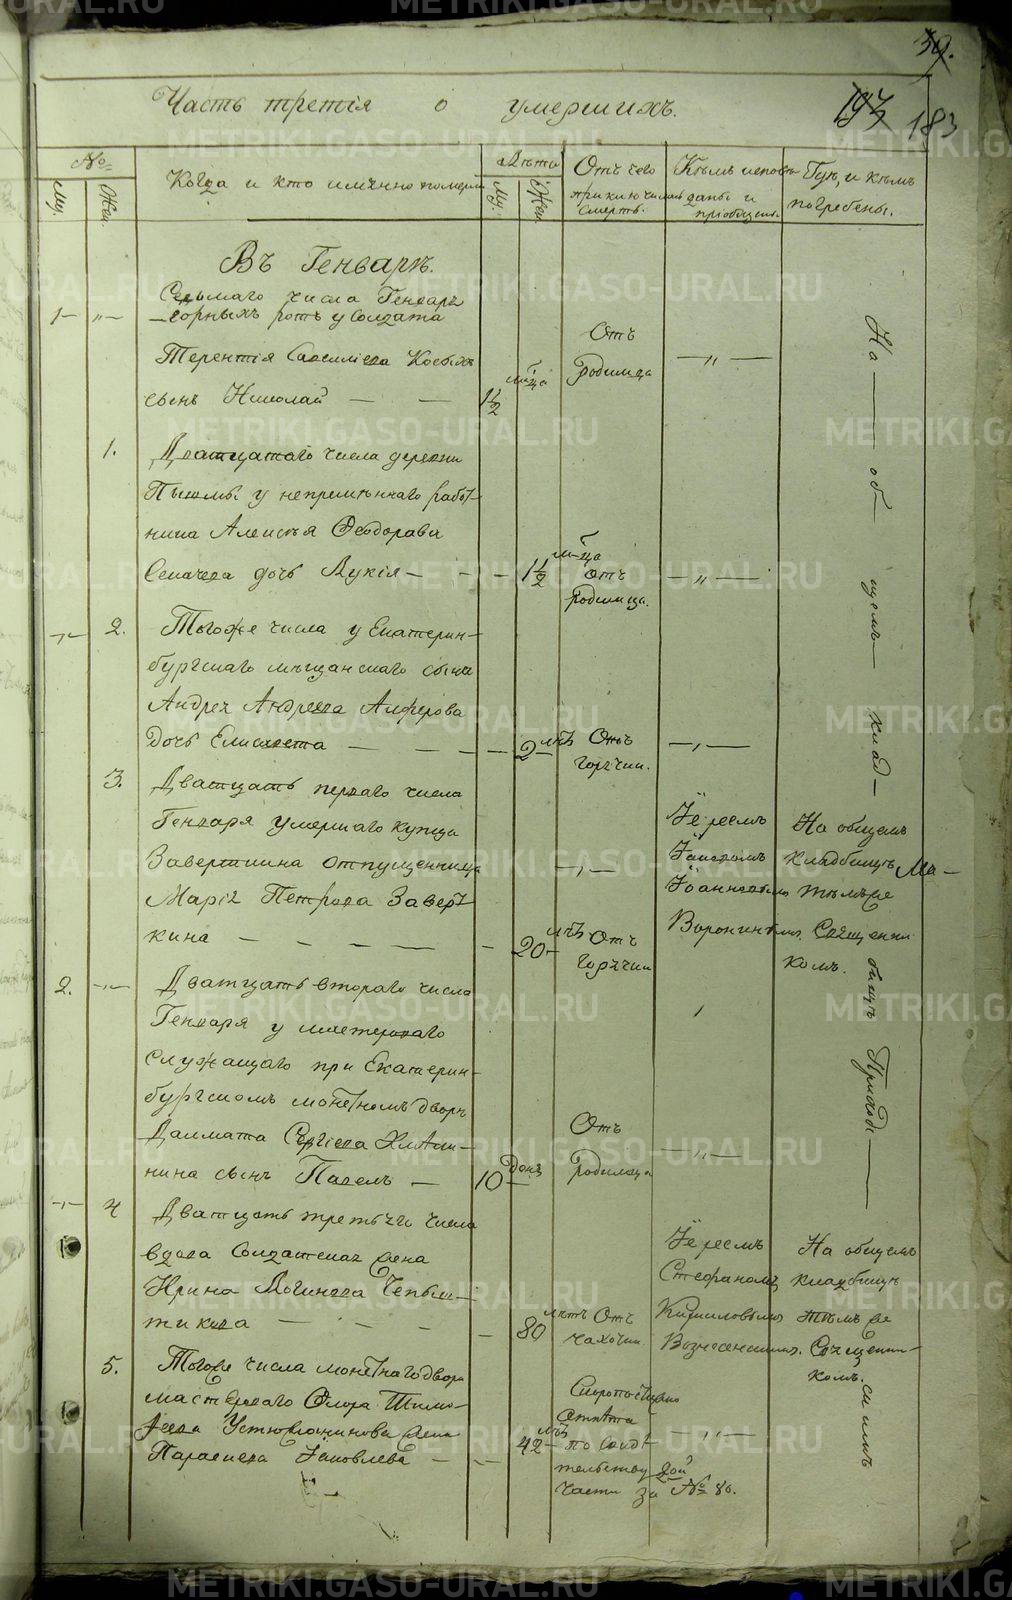 39.
Часть третія о умершихъ.
193 183
№
Му. Жен.
Когда и кто имянно померли
Лѣта
Му. Жен.
Отъ чего
приключилась
смерть.
Кѣмъ исповѣ
даны и
пріобщены.
Гдѣ, и кѣмъ
погребены.
Въ Генварѣ.
1 — „ —
Седьмаго числа Генваря
горныхъ ротъ у солдата
Терентія Савельева
сынъ Николай — —
1 1/2 м-ца
Отъ
Родимца
— „ —
1.
Дватцатаго числа деревни
Пышмы у непремѣннаго работ
ника Алексѣя Феодорова
дочь Лукія — — —
1 1/2 м-ца
отъ
родимца.
— „ —
— „ — 2.
Тогоже числа у Екатерин-
бургскаго мѣщанскаго сына
Андрея Андреева Алферова
Дочь Елисавета — — — —
2 лѣтъ
Отъ
горячки.
— „ —
3.
Дватцать перваго числа
Генваря умершаго купца
Заверткина отпущенница
Марія Петрова Заверт
кина — — — — —
20 лѣтъ
Отъ
Горячки
— „ —
Іереемъ
Іаковомъ
Іоанновымъ
Воронинымъ.
На общемъ
кладбищѣ
тѣмъ же
Священни
комъ.
2. — „ —
Дватцать втораго числа
Генваря у мастероваго
служащаго при Екатерин-
бургскомъ монетномъ дворѣ
Далмата Сергіева
нина сынъ Павелъ —
10 дней
Отъ
Родимца
— „ —
— „ — 4
Дватцать третьяго числа
вдова Солдатская жена
Ирина Логинова
тикова — — — —
80 лѣтъ
Отъ
чахотки
Іереемъ
Стефаномъ
Кирилловымъ
Вознесенскимъ.
На общемъ
кладбищѣ
тѣмъ же
Священни-
комъ.
5.
Тогоже числа монетнаго двора
мастероваго Флора Тимо-
феева Устюжанинова жена
Параскева Іаковлева — — —
42 лѣтъ
Скоропостижно
по свидѣ
тельству 2ой
части за № 86.
— „ —
На — об щемъ — клад — бищѣ Приход — скимъ
METRIKI.GASO-URAL.RU